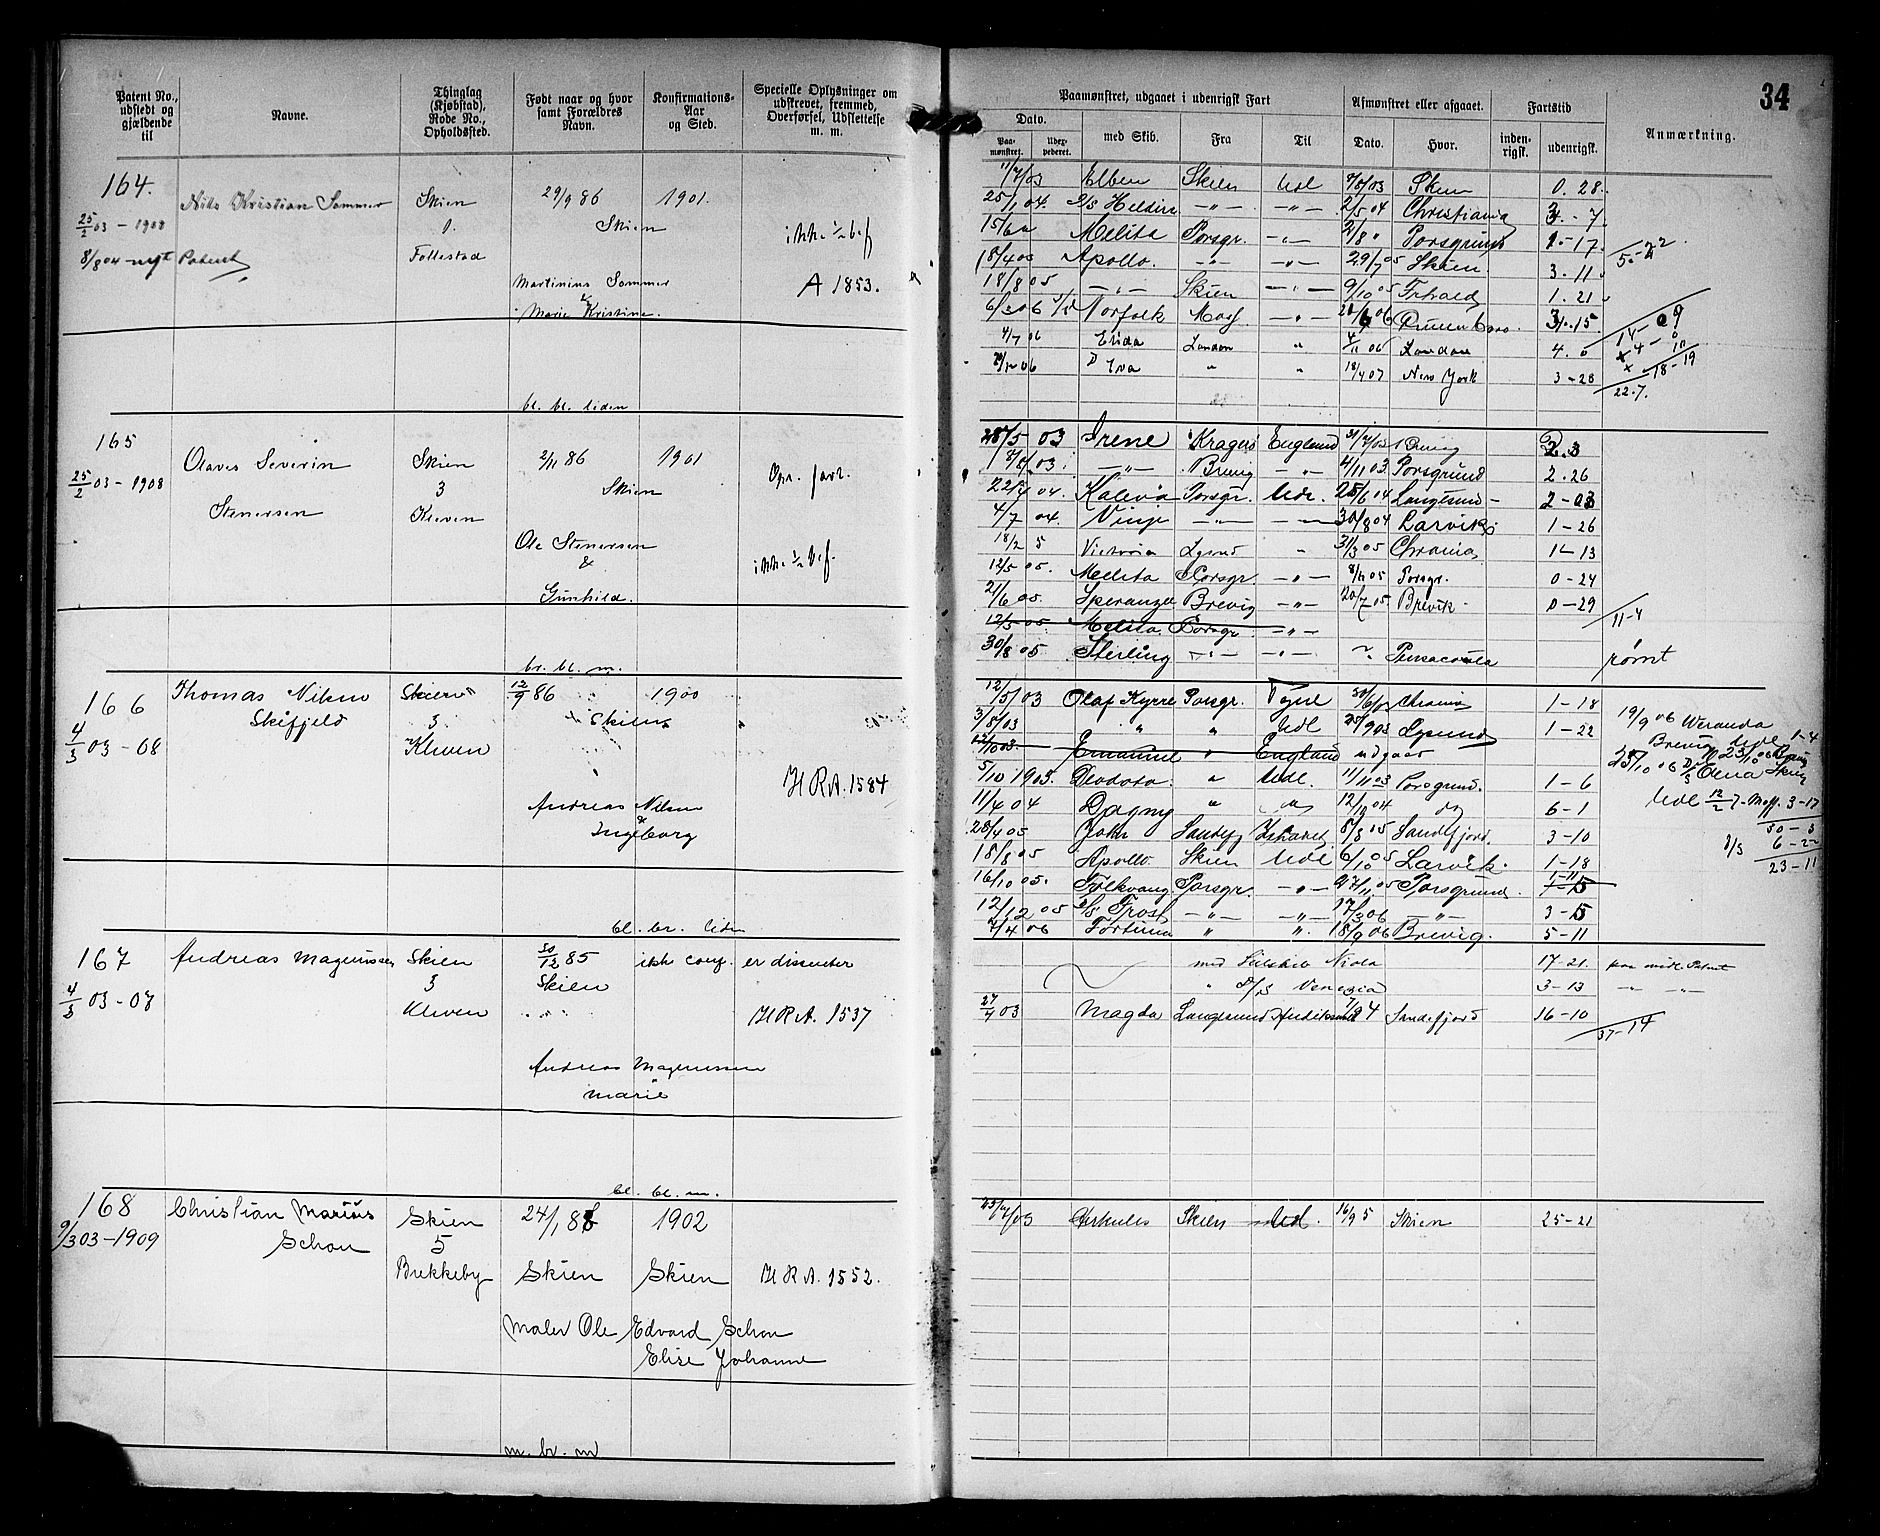 34
Patent No., udstedt og gjældende til
Navne.
Thinglag (Kjøbstad), Rode No., Opholdssted.
Født naar og hvor samt Forældres Navn.
Konfirmations-Aar og Sted.
Specielle Oplysninger om udskrevet, fremmed, Overførsel, Udslettelse m. m.
Paamønstret, udgaaet i udenrigsk Fart
Afmønstret eller afgaaet.
Fartstid
Anmærkning.
Dato.
Paa-mønstret.
Udex-pederet.
med Skib.
Fra
Til
Dato.
Hvor.
inden-rigsk.
udenrigsk.
164.
25/2 03 - 1908
8/8 04 - nyt Patent
Nils Kristian Sommer
Skien
1.
Follestad
29/9 86
Skien
Martinius Sommer
&
Marie Kristine.
bl. bl. liden
1901.
ikke 1/2 bef
A 1853.
11/7 03 Elben Skien Udl 7/8 03 Skien 0. 28.
25/1 04. Christiania
15/6 04 Melita Porsgr. -"- 2/8 " Porsgrund 1-17.
18/4 05 Apollo. -"- -"- 29/7 05 Skien. 3. 11
18/8 05 -"- Skien -"- 9/10 05 1. 21
Norfolk -"- 15.
4/7 06 Elida London " 4/11 06 London 4. 0
" " 18/4 07 New York 3-28
22.7.
165
25/2 03 - 1908
Olaves Severin
Stenersen
Skien
3
Kleven
2/11 86
Skien
Ole Stenersen
&
Gunhild.
br. bl. m.
1901
Opr. fart.
ikke 1/2 bef.
28/5 03 Irene Kragerø England 31/7 03 2.3
-"- Brevig -"- 4/11 03 Porsgrund 2.26
22/4 04. Kaleva Porsgr. Udl. 25/6 04 Langesund - 2-03
4/7 04. Vinje -"- -"- 30/8 04 Larvik 1-26
18/2 5 Victoria " 31/3 05 Chrania 1-13
12/5 05. Melita Porsgr. -"- Porsgr. 0-24
21/6 05. Speranza Brevig -"- 20/7 05. Brevik. 0-29
11-4
12/5 05 Melita Porsgr -"-
30/8 05 Sterling -"- -"- Pensacola
rømt
166
4/3 03 - 08
Thomas Nilsen
Skifjeld
Skien
3
Kleven
12/9 86
Skien
Andreas Nilsen
&
Ingeborg
bl. br. liden
1900
H R A. 1584
12/5 03 Olaf Kyrre Porsgr. Tyne 30/6 03 Chrania 1-18
3/8 03 " " Udl 25/9 03 1-22
Emanuel " England udgaar
5/10 1903. " Udl. 11/11 03 Porsgrund. 1-6
11/4 04 Dagny " 12/10 04 6-1
28/4 05 John 8/8 05 Sandefjord. 3-10
18/8 05 Apollo Skien Udl 6/10 05 Larvik. 1-18
16/10 05. Folkvang Porsgr. -"- Porsgrund.
12/12 05 S/S Frost -"- -"- 17/3 06 -"- 3-5
7/4 06 Fortuna " " 18/9 06 Brevig. 5-11
19/9 06 Weranda
Brevig Udl 1-4
23-11
167
4/3 03 - 08
Andreas Magnussen
Skien
3
Kleven
30/12 85
Skien
Andreas Magnussen
Marie
bl. bl. m.
ikke conf.
er dissenter
H R A. 1537
17-21.
" D/S Venezia 3-13 -"- -"-
27/4 03 Magda Langesund Sandefjord 16-10
37-14
168
9/3 03 - 1909
Christian Marius
Schou
Skien
5
Brekkeby
24/1 88
Skien
Maler Ole Edvard Schou
Elise Johanne
m. br. m
1902
Skien
H R A. 1552.
Herkules Skien Udl. 16/9 5 Skien 25-21